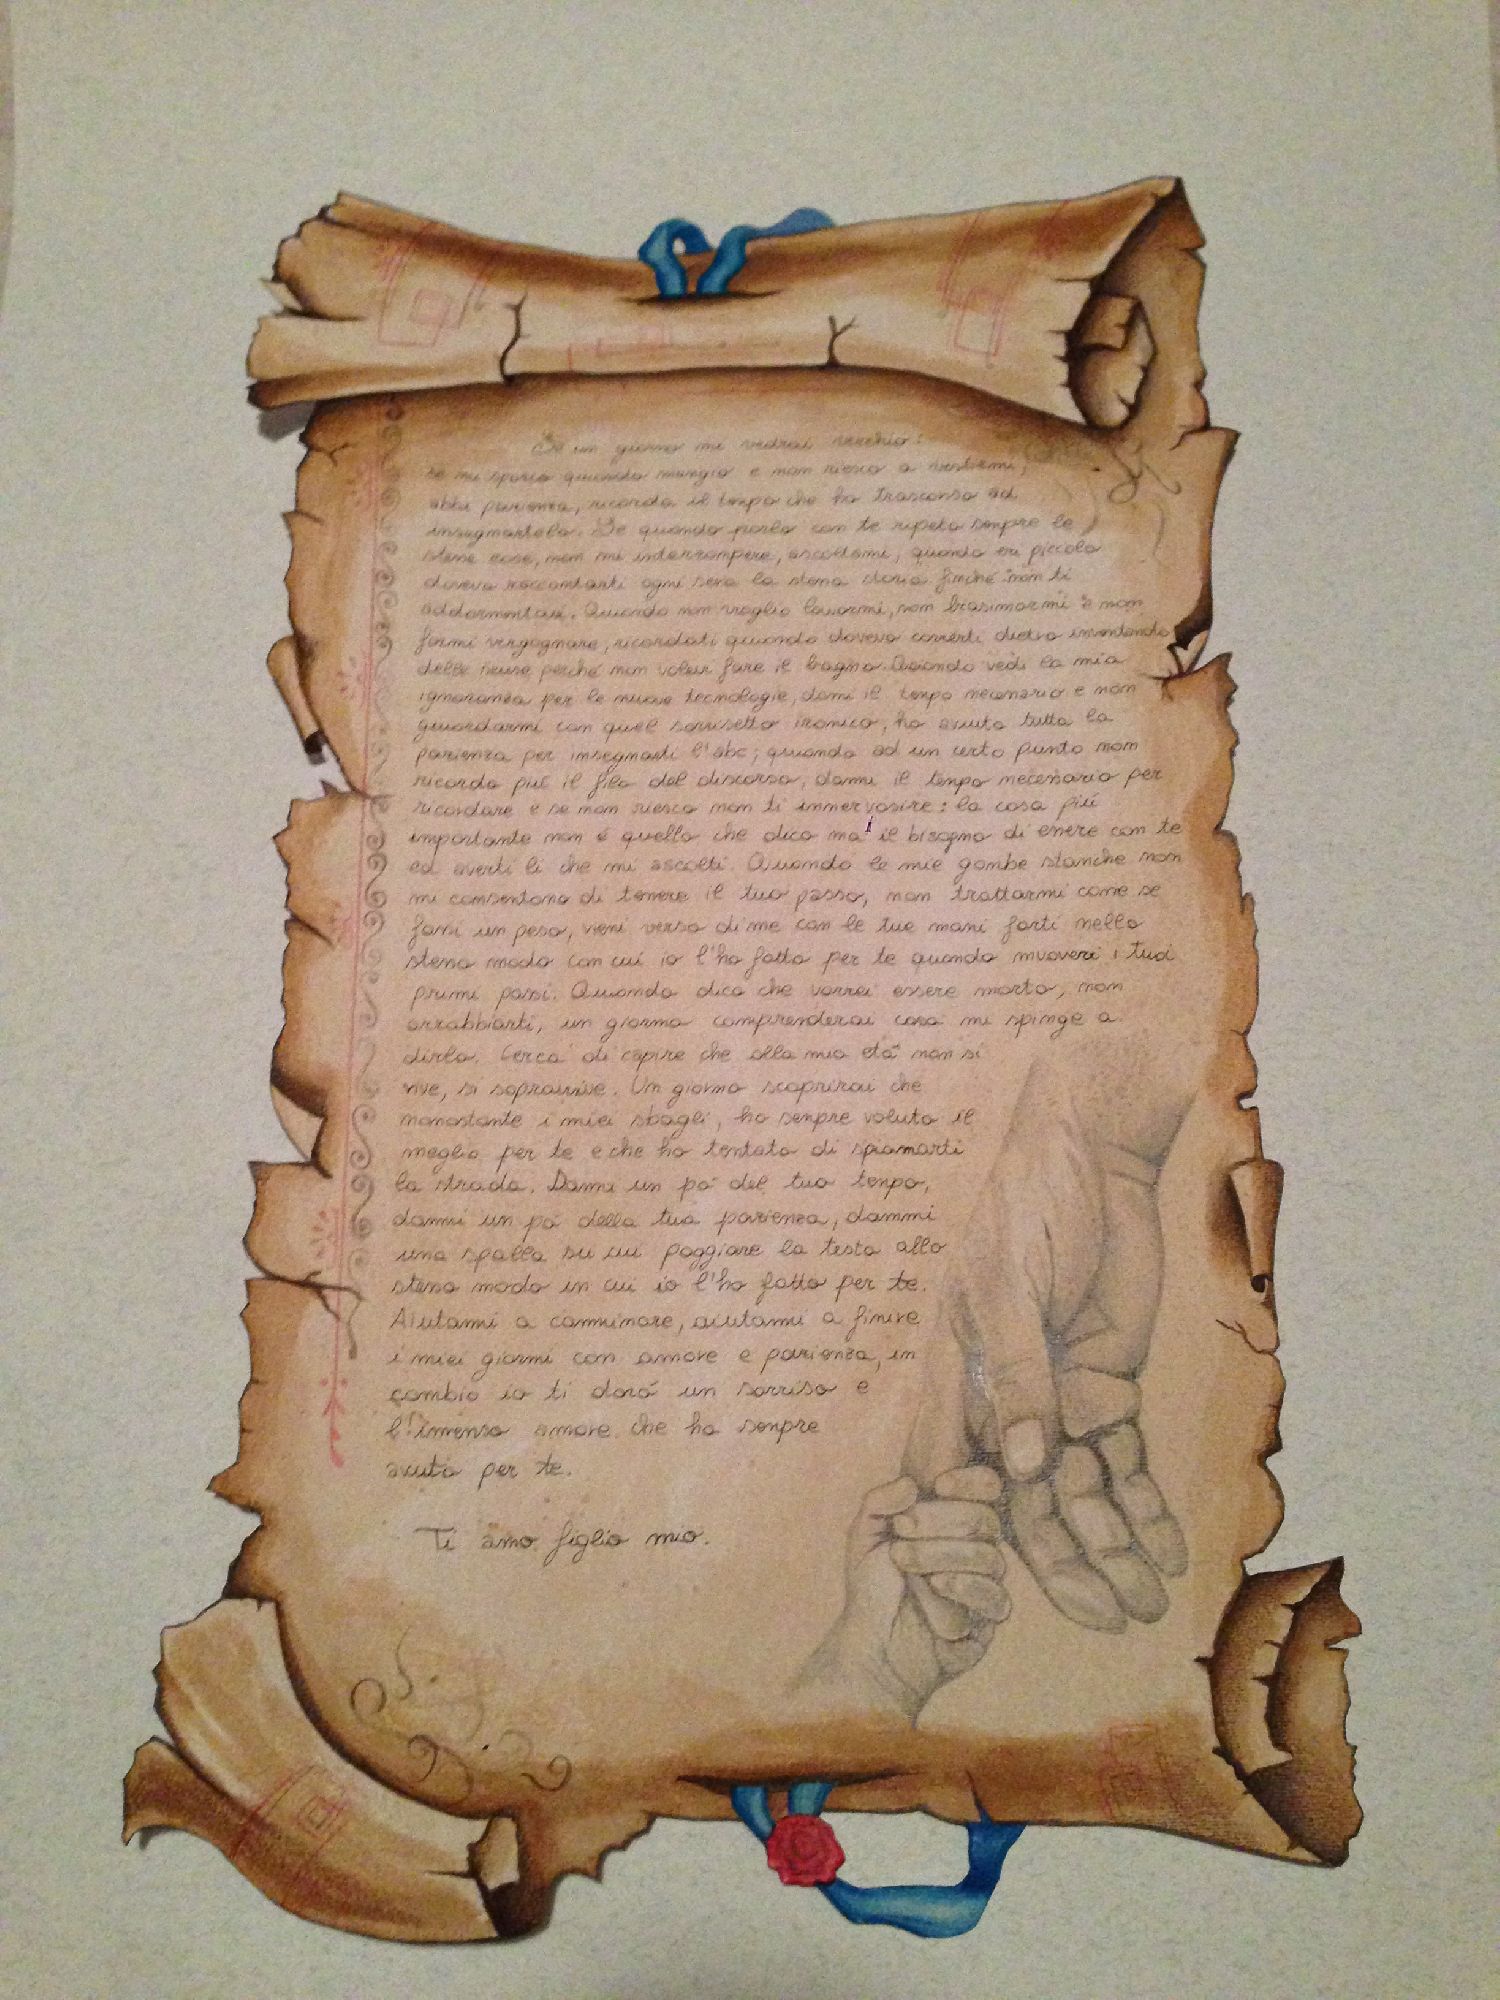 Se un giorno mi vedrai vecchio:
se mi sporco quando mangio e non riesco a vestirmi,
abbi pazienza, ricorda il tempo che ho trascorso ad
insegnartelo. Se quando parlo con te ripeto sempre le
stesse cose, non mi interrompere, ascoltami, quando eri piccolo
dovevo raccontarti ogni sera la stessa storia finché non ti
addormentavi. Quando non voglio lavarmi, non biasimarmi e non
farmi vergognare, ricordati quando dovevo correrti dietro inventando
delle scuse perché non volevi fare il bagno. Quando vedi la mia
ignoranza per le nuove tecnologie, dami il tempo necessario e non
guardarmi con quel sorrisetto ironico, ho avuto tutta la
pazienza per insegnarti l'abc; quando ad un certo punto non
ricordo più il filo del discorso, dammi il tempo necessario per
ricordare e se non riesco non ti innervosire: la cosa più
importante non è quello che dico ma il bisogno di essere con te
ed averti lì che mi ascolti. Quando le mie gambe stanche non
mi consentono di tenere il tuo passo, non trattarmi come se
fossi un peso, vieni verso di me con le tue mani forti nello
stesso modo con cui io l'ho fatto per te quando muovevi i tuoi
primi passi. Quando dico che vorrei essere morto, non
arrabbiarti, un giorno comprenderai cosa mi spinge a
dirlo. Cerca di capire che alla mia età non si
vive, si sopravvive. Un giorno scoprirai che
nonostante i miei sbagli, ho sempre voluto il
meglio per te e che ho tentato di spianarti
la strada. Dammi un pò del tuo tempo,
dammi un pò della tua pazienza, dammi
una spalla su cui poggiare la testa allo
stesso modo in cui io l'ho fatto per te.
Aiutami a camminare, aiutami a finire
i miei giorni con amore e pazienza, in
cambio io ti darò un sorriso e
l'immenso amore che ho sempre
avuto per te.
Ti amo figlio mio.